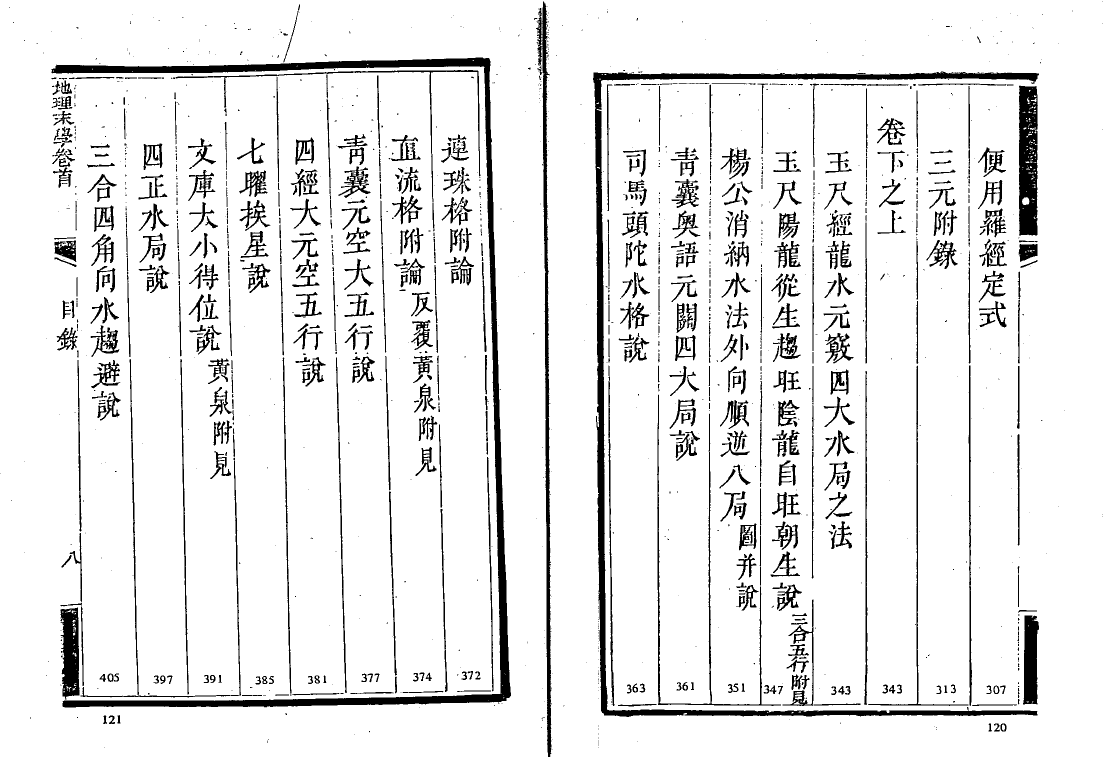 便用羅經定式 307
三元附錄 313
卷下之上 343
玉尺經龍水元竅四大水局之法 343
玉尺陽龍從生趨旺陰龍自旺朝生說 三合五行附見 347
楊公消納水法外向順逆八局 圖并說 351
青囊奧語元關四大局說 361
司馬頭陀水格說 363
120
連珠格附論 372
直流格附論 反覆黃泉附見 374
青囊元空大五行說 377
四經大元空五行說 381
七曜挨星說 385
文庫大小得位說 黃泉附見 391
四正水局說 397
三合四角向水趨避說 405
地理末學卷首 目錄 八
121